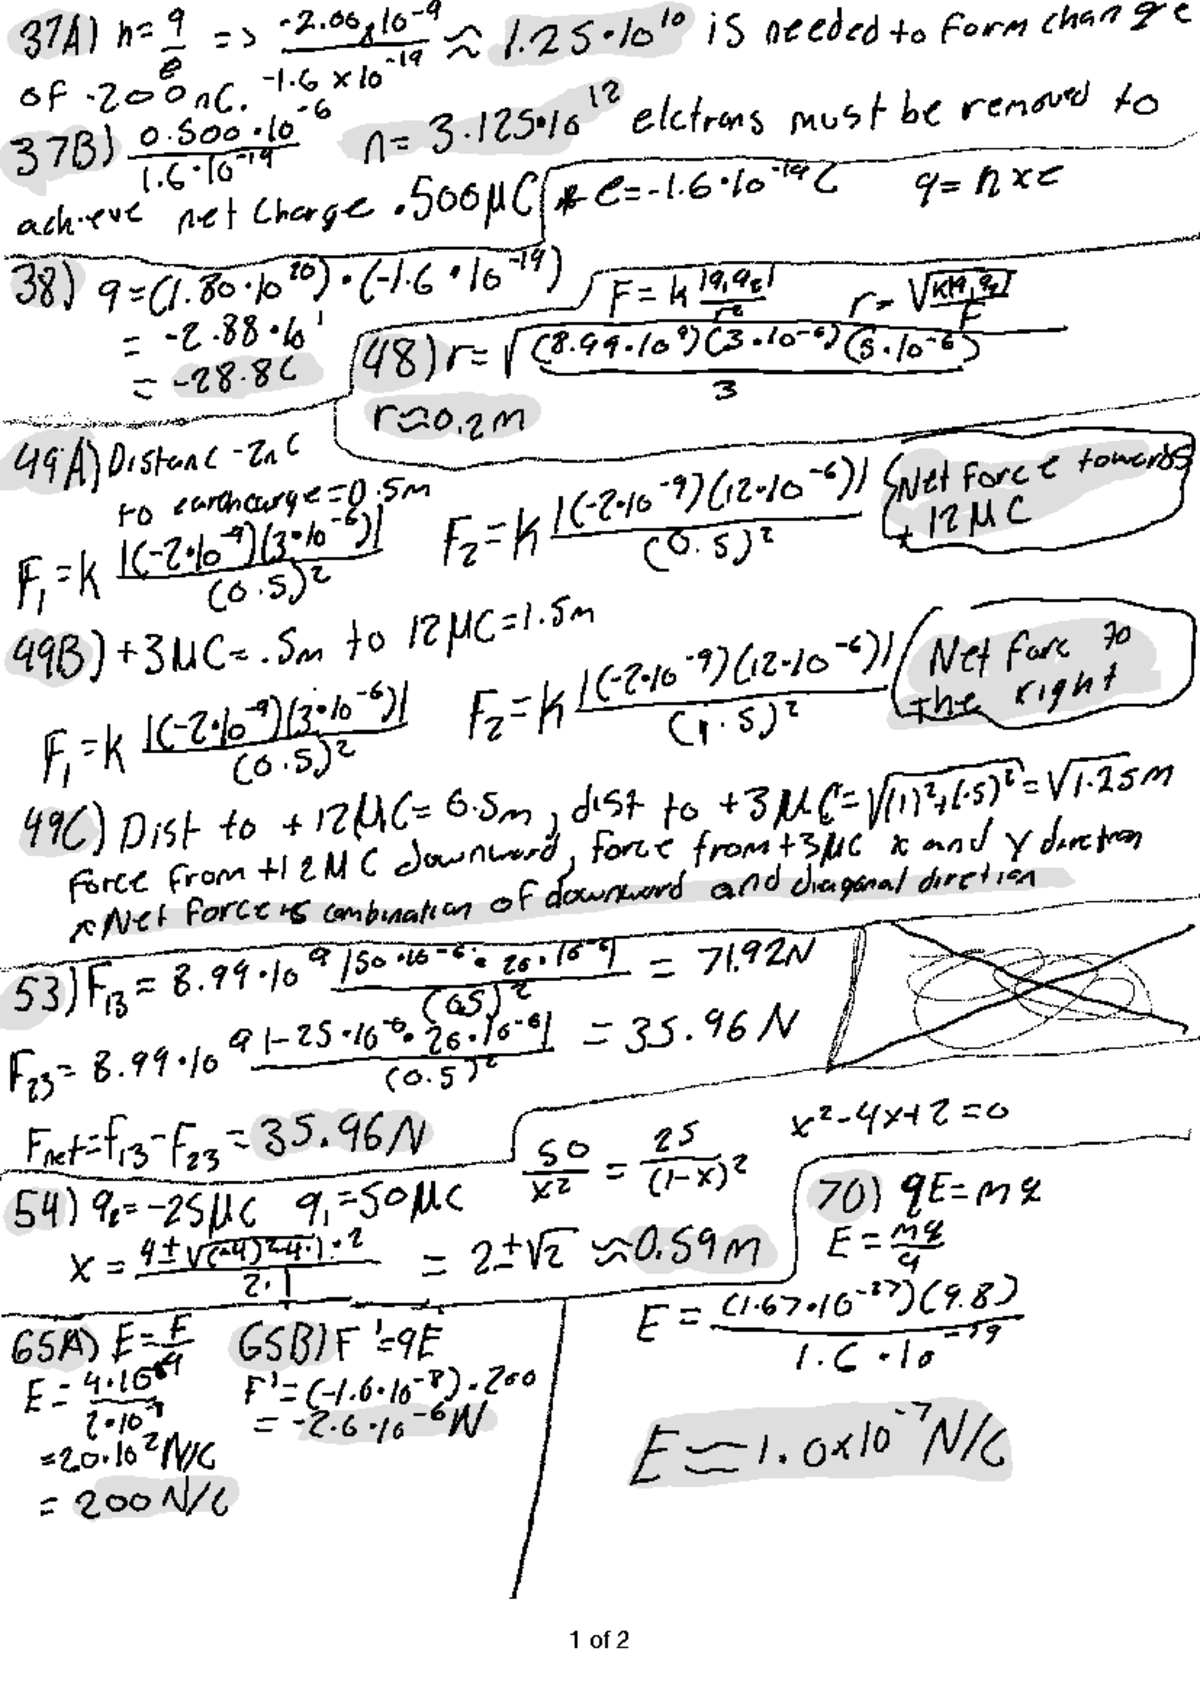 37A) n = q/e => -2.00×10^-9 / -1.6×10^-19 ≈ 1.25·10^10 is needed to form change
of -2.00nC.
37B) 0.500·10^-6 / 1.6·10^-19 n = 3.125·10^12 elctrons must be removed to
achieve net charge .500μC * e = -1.6·10^-19 C q = n×e
38) q = (1.80·10^20)·(-1.6·10^-19)
= -2.88·10^1
= -28.8C
F = k |q1q2| / r^2 r = √(k|q1q2| / F)
48) r = √((8.99·10^9)(3·10^-6)(5·10^-6) / 3
r ≈ 0.2m
49A) Distanc -2nC
to earchcarge = 0.5m
F1 = k |(-2·10^-9)(3·10^-6)| / (0.5)^2 F2 = k |(-2·10^-9)(12·10^-6)| / (0.5)^2
Net force towards
+12μC
49B) +3μC = .5m to 12μC = 1.5m
F1 = k |(-2·10^-9)(3·10^-6)| / (0.5)^2 F2 = k |(-2·10^-9)(12·10^-6)| / (1.5)^2
Net forc to
the right
49C) Dist to +12μC = 0.5m, dist to +3μC = √((1)^2+(.5)^2) = √1.25m
Force from +12μC downward, force from +3μC x and y direction
Net force is combination of downward and diagonal diretion
53) F13 = 8.99·10^9 |50·10^-6·20·10^-6| / (0.5)^2 = 71.92N
F23 = 8.99·10^9 |-25·10^-6·20·10^-6| / (0.5)^2 = 35.96N
Fnet = f13 - F23 = 35.96N
54) q2 = -25μC q1 = 50μC 50/x^2 = 25/(1-x)^2 x^2-4x+2=0
x = 4±√((-4)^2-4·1·2 / 2·1 = 2±√2 ≈ 0.59m
65A) E = F/q
E = 4·10^ / 2·10^
= 20·10^2 N/C
= 200 N/C
65B) F' = qE
F' = (-1.6·10^-8)·200
= -2.6·10^-6 N
70) qE = mg
E = mg/q
E = (1.67·10^-27)(9.8) / 1.6·10^-19
E ≈ 1.0×10^-7 N/C
1 of 2